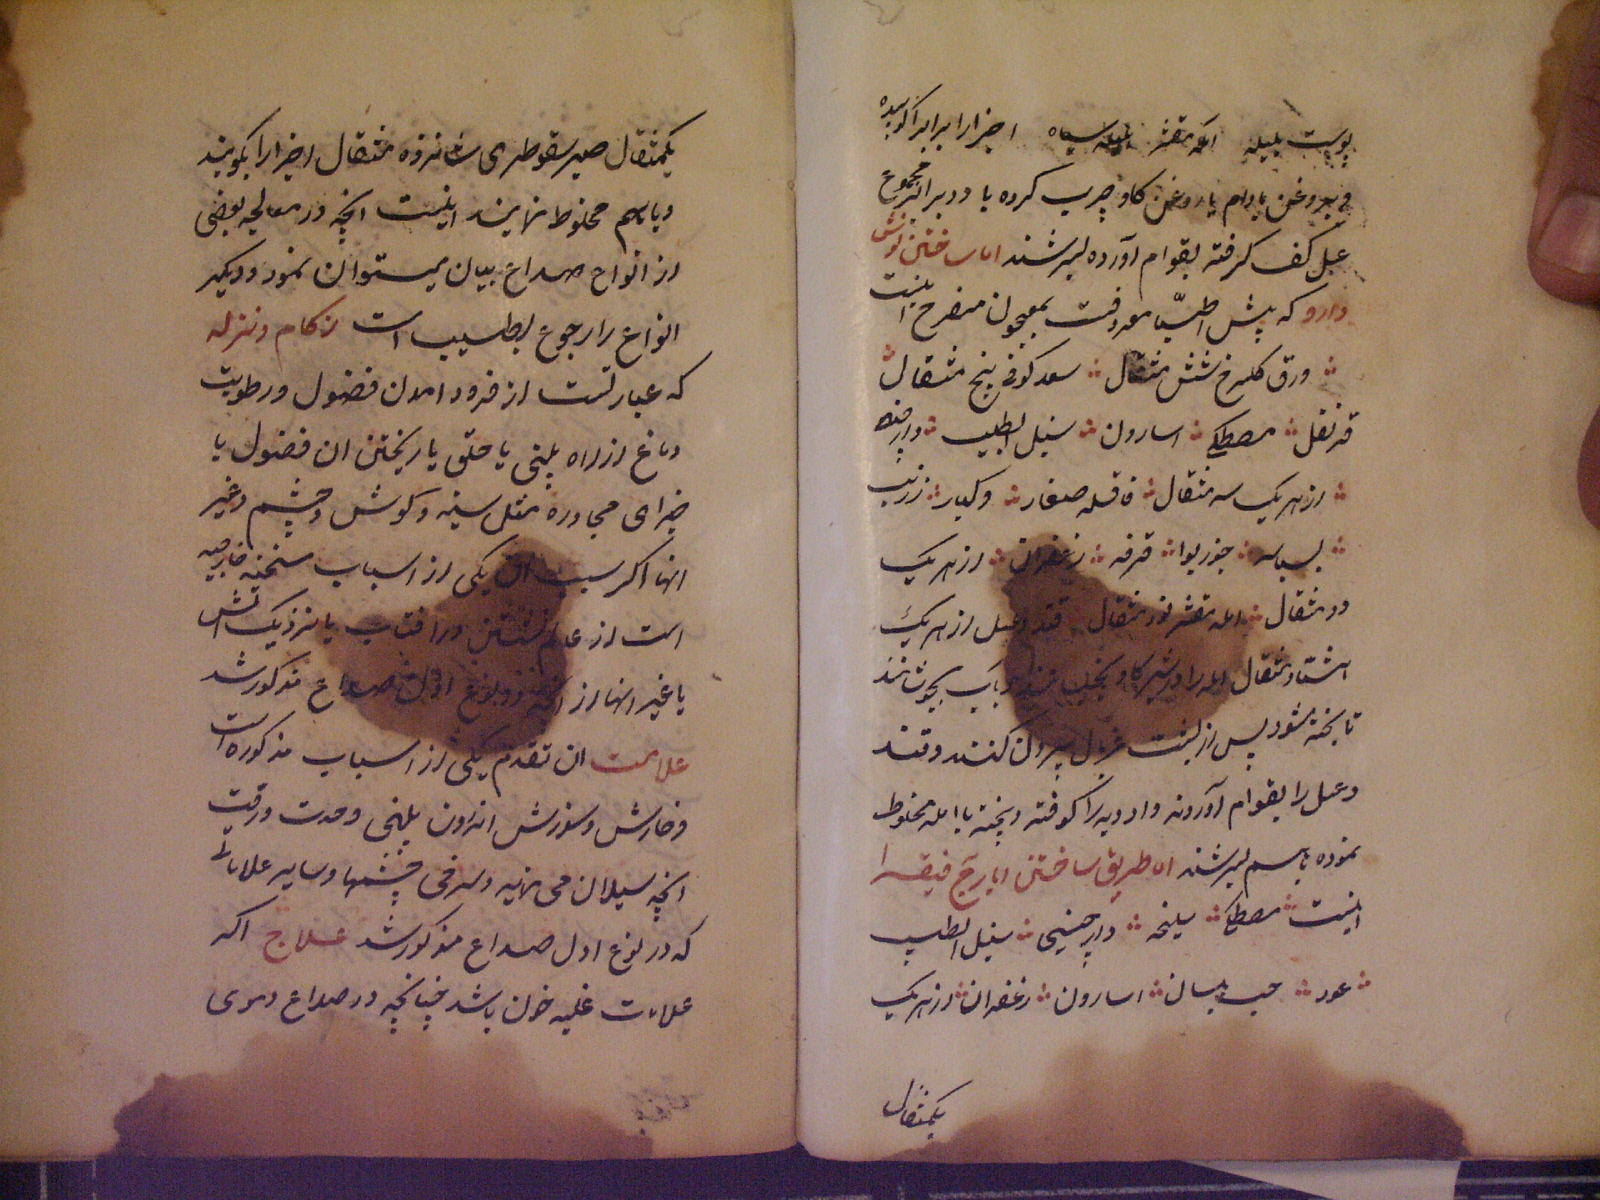 پوست بلیله آمله مقشر هلیله سیاه اجزا را برابر کوبیده
بروغن بادام یا روغن کاو چرب کرده با دو برابر مجموع
عسل کف کرفته بقوام آورده بسرشند اما ساختن نوش
دارو که پیش اطبا معروفست بمعجون مفرح اینست
ورق کلسرخ شش مثقال سعد کوفی پنج مثقال
قرنفل مصطکی اسارون سنبل الطیب دارچینی
از هر یک سه مثقال قاقله صغار و کبار زرنب
بسباسه جوزبوا قرفه زعفران از هر یک
دو مثقال امله مقشر نود مثقال قند و عسل از هر یک
هشتاد مثقال امله را در شیر کاو بآب بجوشانند
تا پخته شود پس از پشت غربال بیرون کنند و قند
و عسل را بقوام آورده و ادویه را کوفته و بیخته با امله مخلوط
نموده با هم بسرشند اما طریق ساختن ایارج فیقرا
اینست مصطکی سلیخه دارچینی سنبل الطیب
عود حب بلسان اسارون زعفران از هر یک
یکمثقال
یکمثقال صبر سقوطری شانزده مثقال اجزا را بکوبند
و با هم مخلوط نمایند اینست انچه در معالجه بعضی
از انواع صداع بیان میتوان نمود و دیکر
انواع را رجوع بطبیب است زکام و نزله
که عبارتست از فرود امدن فضول و رطوبت
دماغ از راه بینی یا حلق یا ریختن ان فضول با
جزای مجاوره مثل سینه و کوش و چشم و غیر
انها اکر سبب ان یکی از اسباب مسخنه خارجیه
است از نشستن در افتاب یا نزدیک اتش
یا غیر انها از انچه در نوع اول صداع مذکور شد
علامت ان تقدم یکی از اسباب مذکوره است
و خارش و سوزش اندرون بینی و حدت و رقت
انچه سیلان می نماید و سرخی چشمها و سایر علاماتی
که در نوع اول صداع مذکور شد علاج اکر
علامت غلبه خون باشد چنانچه در صداع دموی